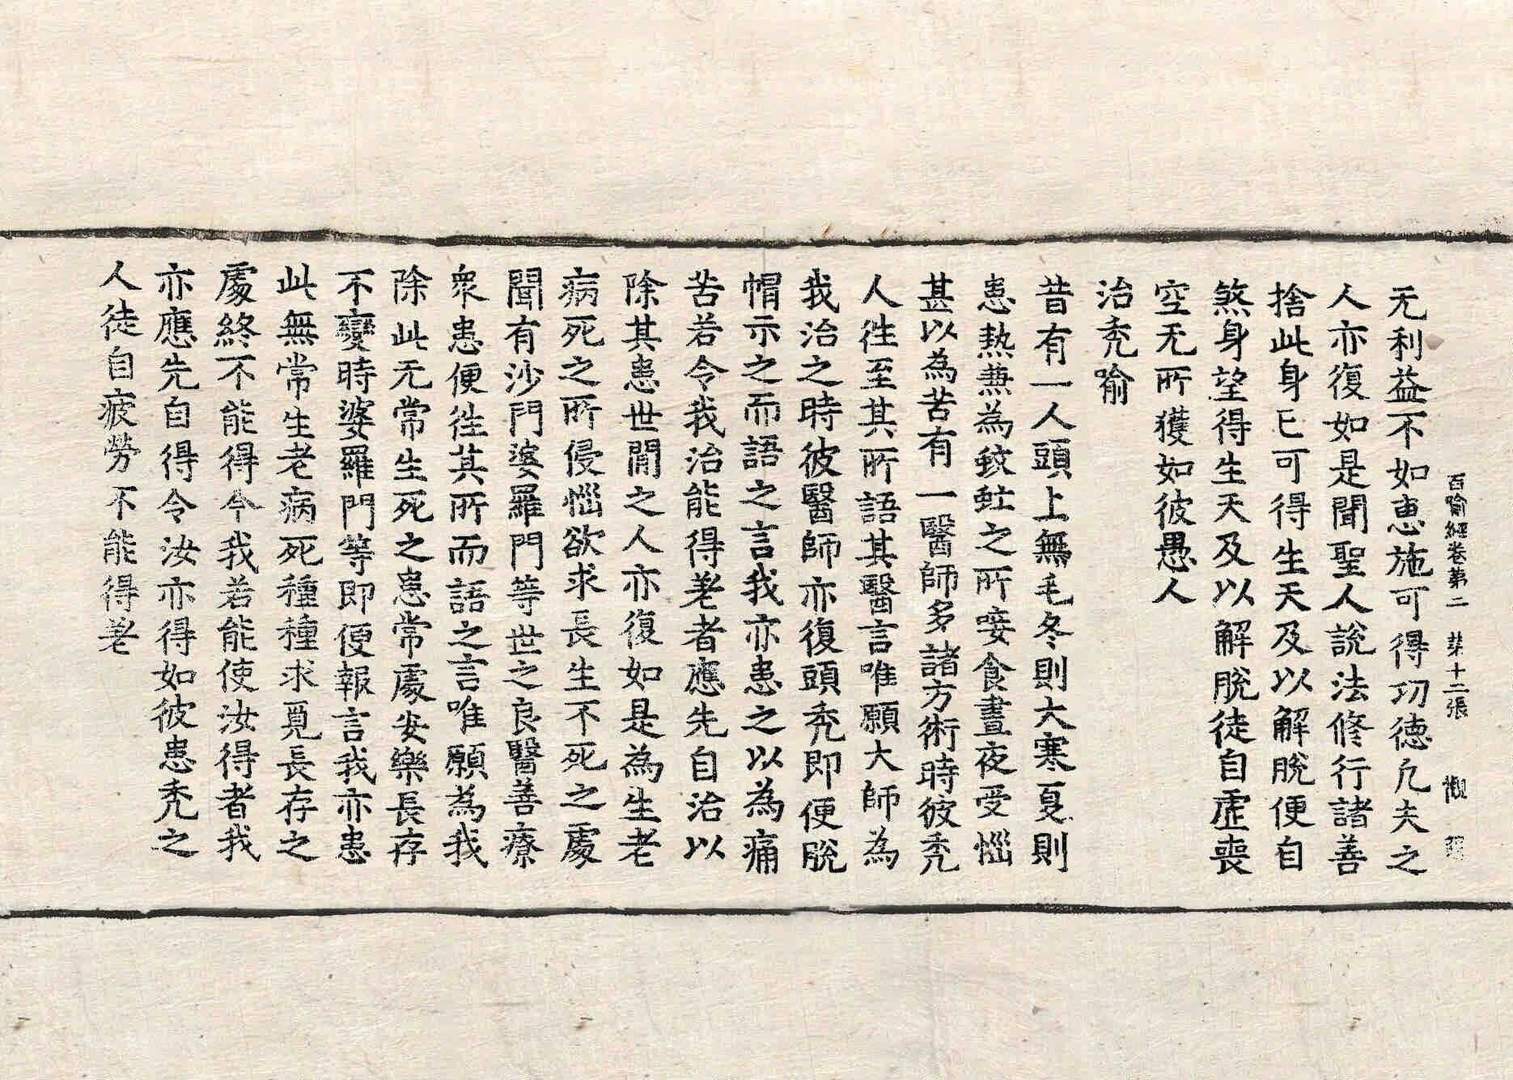 百喻經卷第二 苐十二張 觀
无利益不如惠施可得功德凢夫之
人亦復如是聞聖人說法修行諸善
捨此身已可得生天及以解脫便自
煞身望得生天及以解脫徒自虛喪
空无所獲如彼愚人
治禿喻
昔有一人頭上無毛冬則大寒夏則
患熱兼為蚊虻之所唼食晝夜受惱
甚以為苦有一醫師多諸方術時彼禿
人往至其所語其醫言唯願大師為
我治之時彼醫師亦復頭禿即便脫
帽示之而語之言我亦患之以為痛
苦若令我治能得差者應先自治以
除其患世間之人亦復如是為生老
病死之所侵惱欲求長生不死之處
聞有沙門婆羅門等世之良醫善療
眾患便往其所而語之言唯願為我
除此无常生死之患常處安樂長存
不變時婆羅門等即便報言我亦患
此無常生老病死種種求覓長存之
處終不能得今我若能使汝得者我
亦應先自得令汝亦得如彼患禿之
人徒自疲勞不能得差